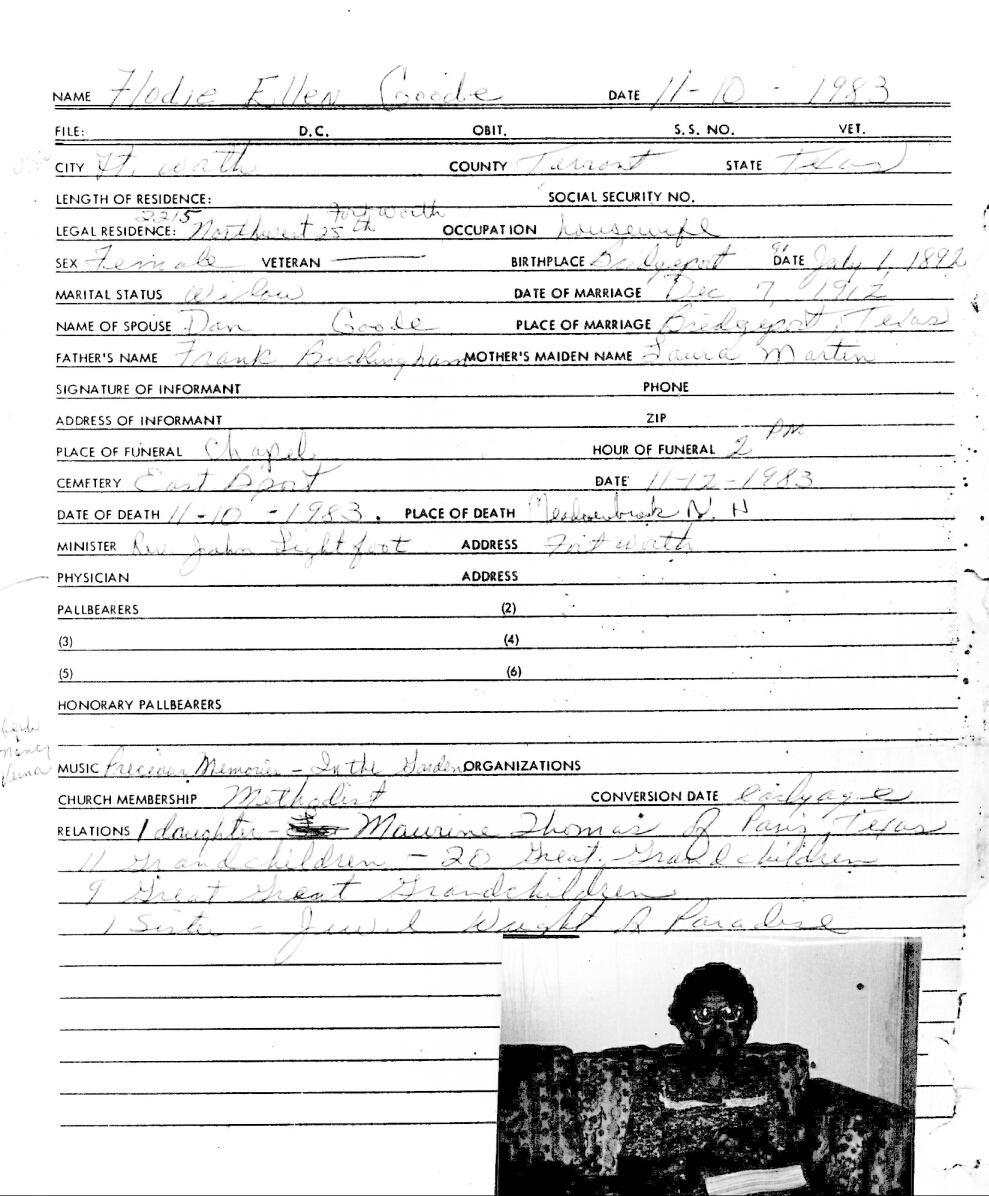 NAME Flodie Ellen Goode DATE 11-10-1983
FILE: D.C. OBIT. S.S. NO. VET.
CITY Ft. Worth COUNTY Tarrant STATE Texas
LENGTH OF RESIDENCE: SOCIAL SECURITY NO.
2215 Fort Worth
LEGAL RESIDENCE: Northwest 25th OCCUPATION housewife
SEX Female VETERAN — BIRTHPLACE Bridgeport DATE July 1, 1892
MARITAL STATUS Widow DATE OF MARRIAGE Dec 7, 1912
NAME OF SPOUSE Dan Goode PLACE OF MARRIAGE Bridgeport, Texas
FATHER'S NAME Frank Buckingham MOTHER'S MAIDEN NAME Laura Martin
SIGNATURE OF INFORMANT PHONE
ADDRESS OF INFORMANT ZIP
PLACE OF FUNERAL Chapel HOUR OF FUNERAL 2 PM
CEMETERY East B'port DATE 11-12-1983
DATE OF DEATH 11-10-1983. PLACE OF DEATH Meadowbrook N. H
MINISTER Rev. John Lightfoot ADDRESS Fort Worth
PHYSICIAN ADDRESS
PALLBEARERS (2)
(3) (4)
(5) (6)
HONORARY PALLBEARERS
Nancy
MUSIC Precious Memories - In the Garden ORGANIZATIONS
CHURCH MEMBERSHIP Methodist CONVERSION DATE early age
RELATIONS 1 daughter - Maurine Thomas of Paris, Texas
11 Grandchildren - 20 Great Grandchildren
9 Great Great Grandchildren
1 Sister - Jewel Wright of Paradise